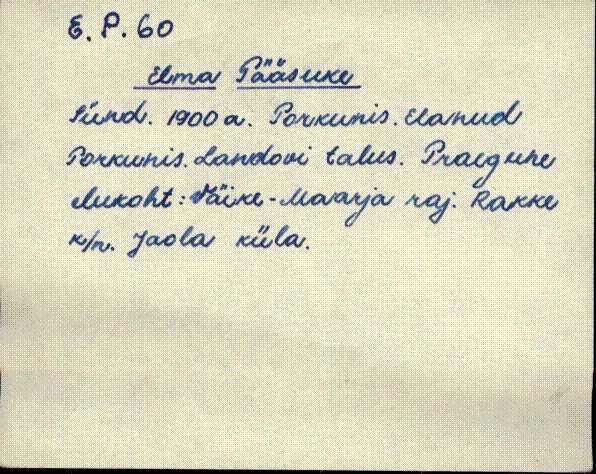 E. P. 60
Elma Pääsuke
Sünd. 1900 a. Porkunis. Elanud
Porkunis. Landovi talus. Praegune
elukoht: Väike-Maarja raj. Rakke
k/n. Jaola küla.